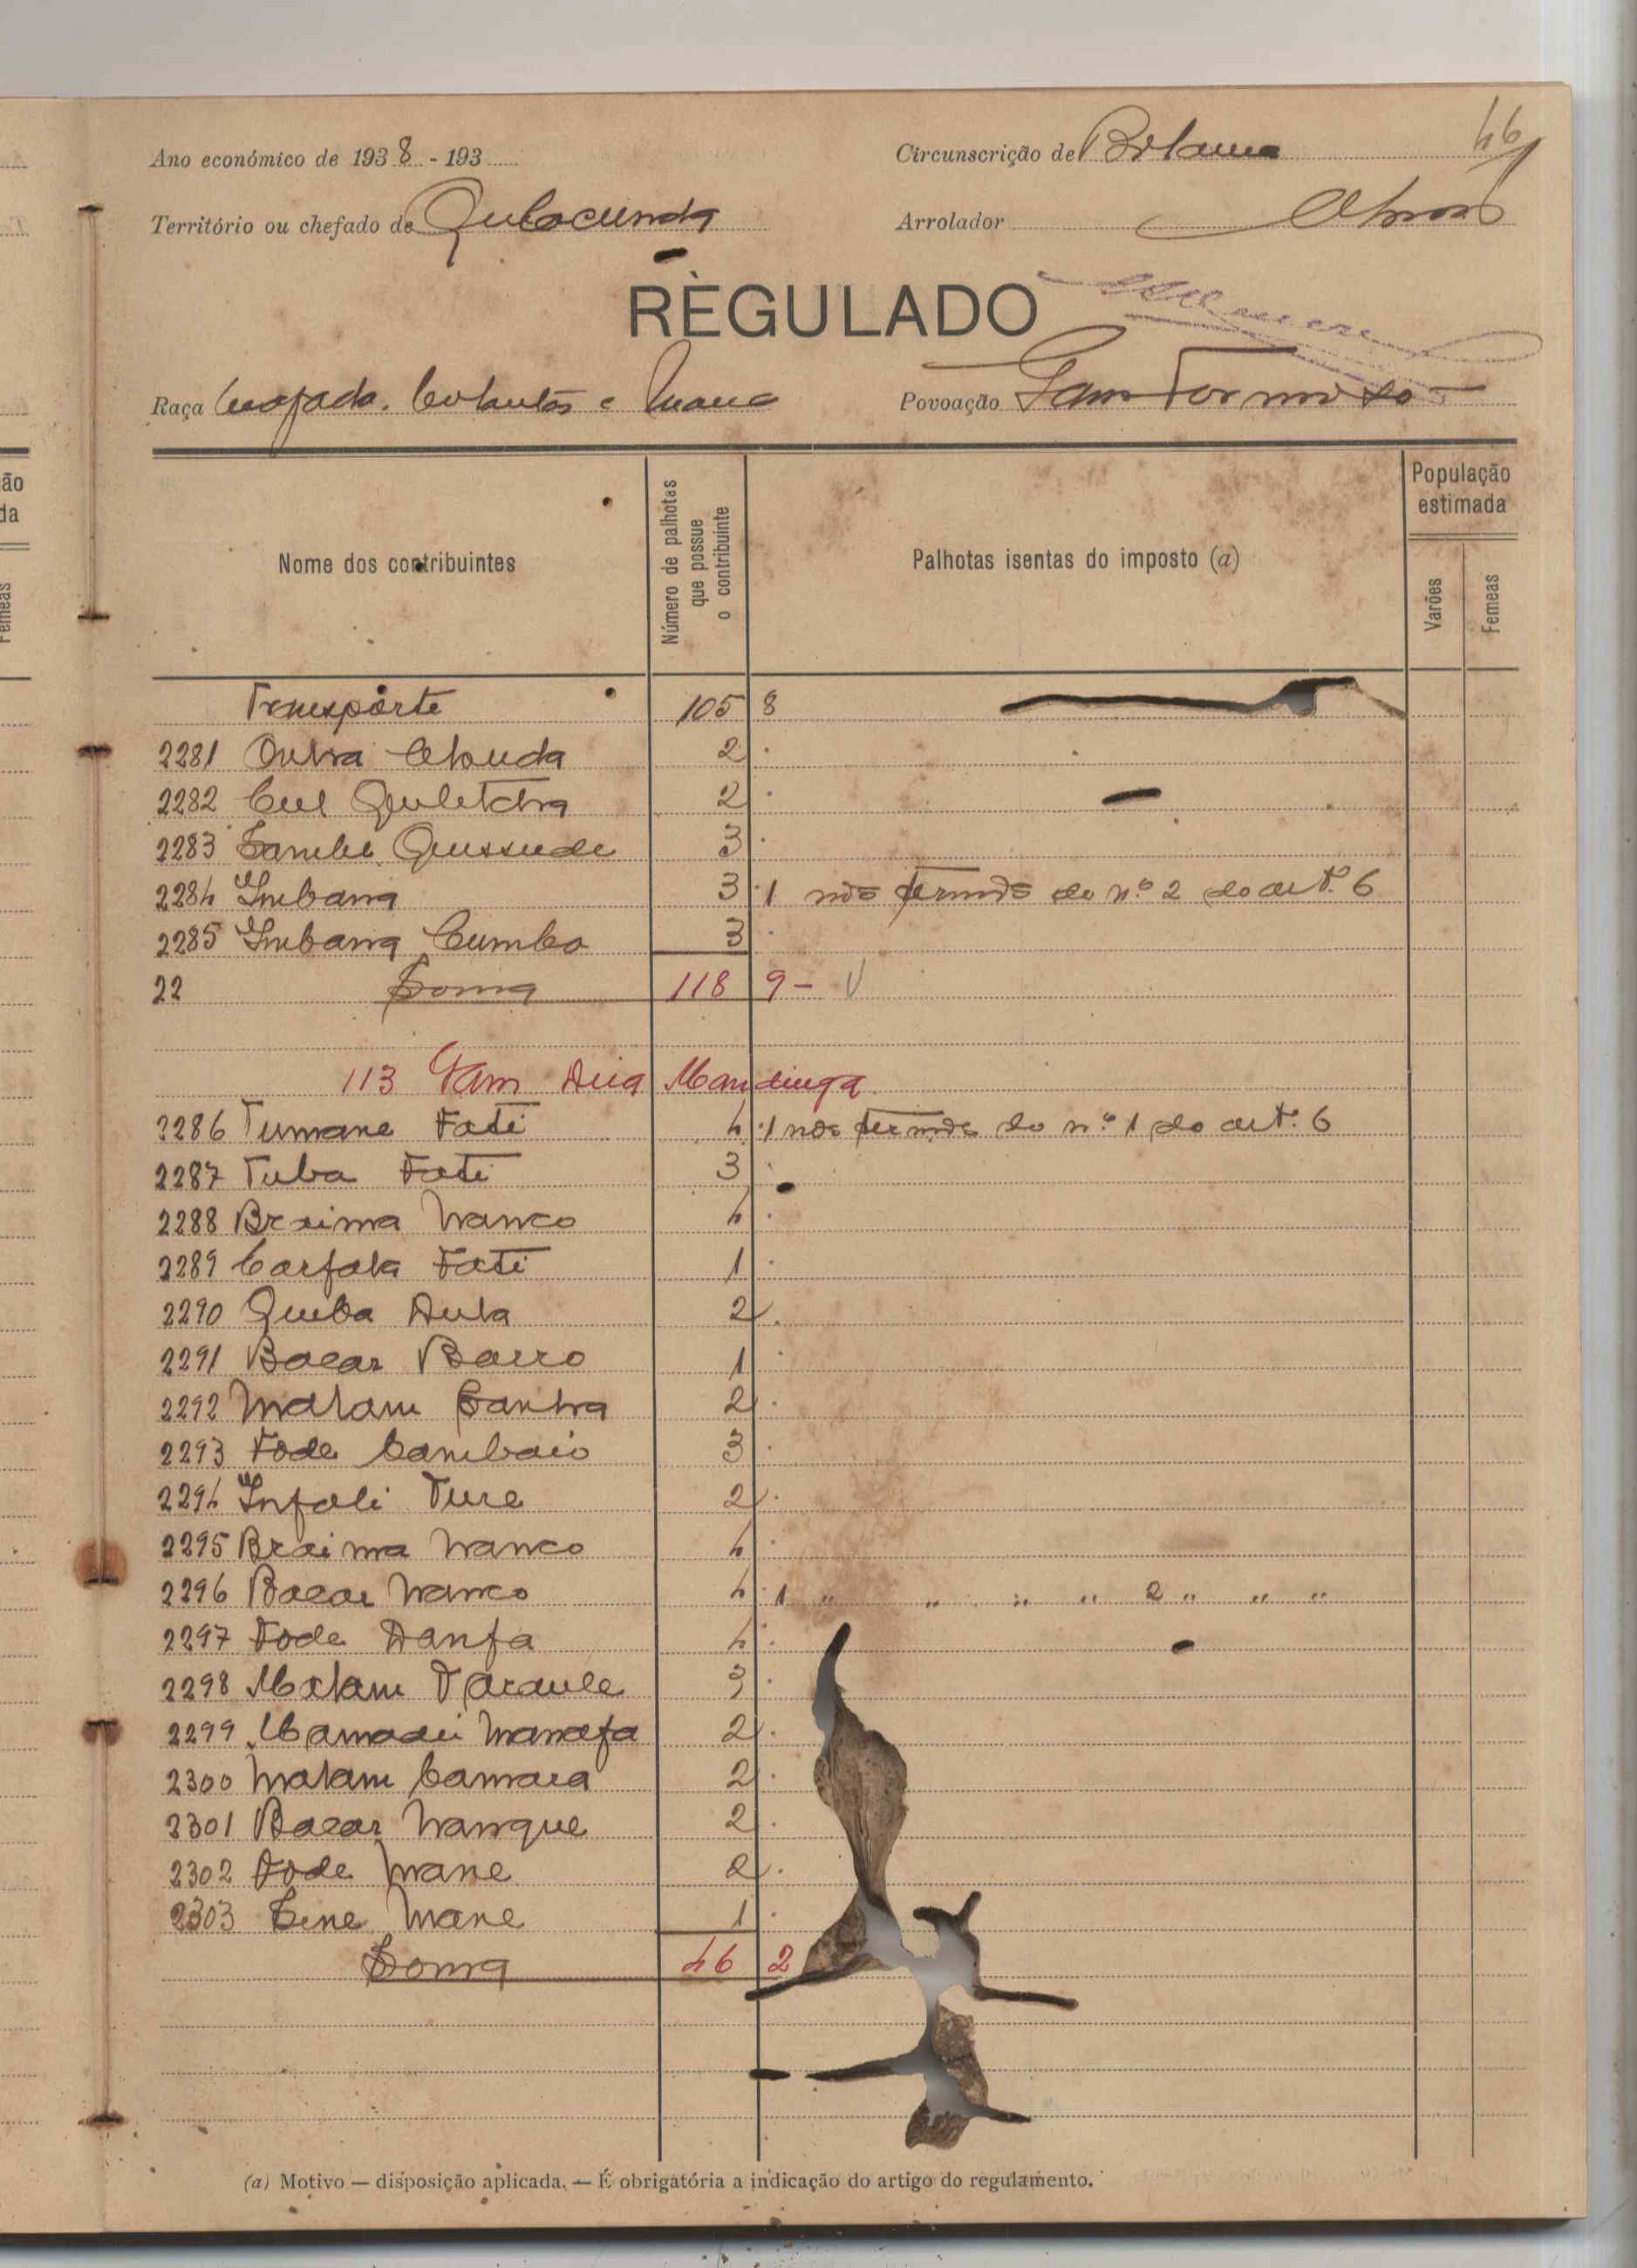 46
Ano económico de 1938 - 193
Circunscrição de Bolama
Território ou chefado de Qubocunda
Arrolador
REGULADO
Raça Beafada. e
Povoação Gam Formoso
ão
da
Femeas
Nome dos contribuintes
Número de palhotas que possue o contribuinte
Palhotas isentas do imposto (a)
População estimada
Varões
Femeas
Transporte 105 8
2281 2
2282 2
2283 3
2284 Imbana 3 1 nos termos do nº 2 do artº 6
2285 Imbana Cumba 3
22 Soma 118 9 - V
113 Gam Mandinga
2286 Tumane Fati 4 1 nos termos do nº 1 do artº 6
2287 Tuba Fati 3
2288 Braima Nanco 4
2289 Carfala Fati 1
2290 Queba 2
2291 Bacar Barro 1
2292 Malam Sanha 2
2293 Fode Cambaio 3
2294 Infali Ture 2
2295 Braima Nanco 4
2296 Bacar Nanco 4 1 " " " " 2 " " "
2297 Fode Danfa 4
2298 Malam Taraule 3
2299 Mamadu Manafa 2
2300 Malam Camara 2
2301 Bacar Nanque 2
2302 Fode Mane 2
2303 Sene Mane 1
Soma 46 2
(a) Motivo — disposição aplicada. — É obrigatória a indicação do artigo do regulamento.